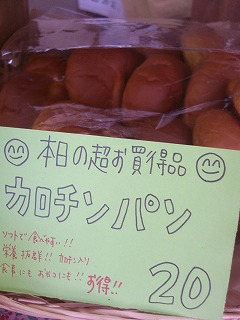 本日の超お買得品
カロチンパン
ソフトで食べやすい!!
栄養抜群!! カロチン入り
食事にもおやつにも!! お得!!
20